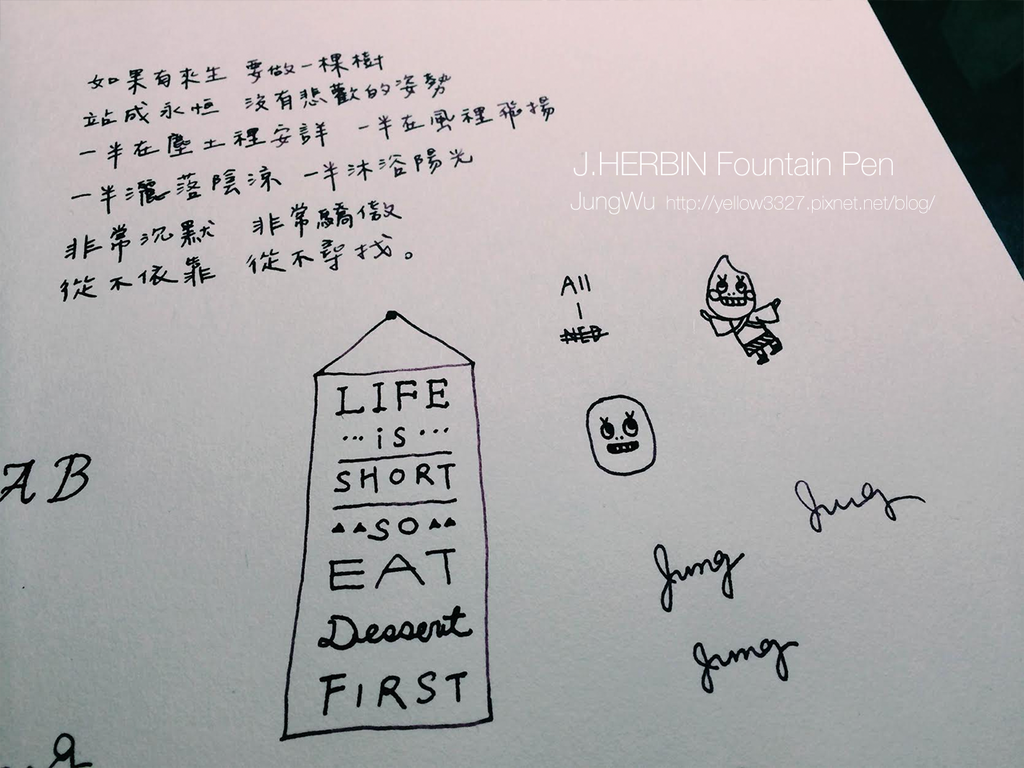 如果有來生 要做一棵樹
站成永恒 沒有悲歡的姿勢
一半在塵土裡安詳 一半在風裡飛揚
一半灑落陰涼 一半沐浴陽光
非常沉默 非常驕傲
從不依靠 從不尋找。
J.HERBIN Fountain Pen
JungWu http://yellow3327.pixnet.net/blog/
All
I
LIFE
...is...
SHORT
SO
EAT
Dessert
FIRST
AB
Jung
Jung
Jung